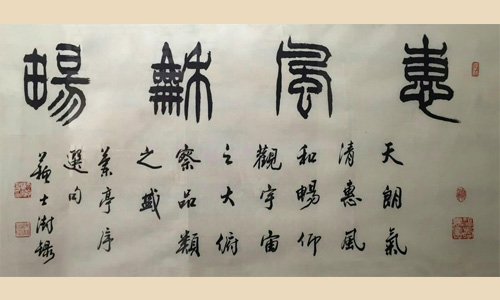 惠風龢暢
天朗氣
清惠風
和暢仰
觀宇宙
之大俯
察品類
之盛
蘭亭序
選句
蘇士澍錄